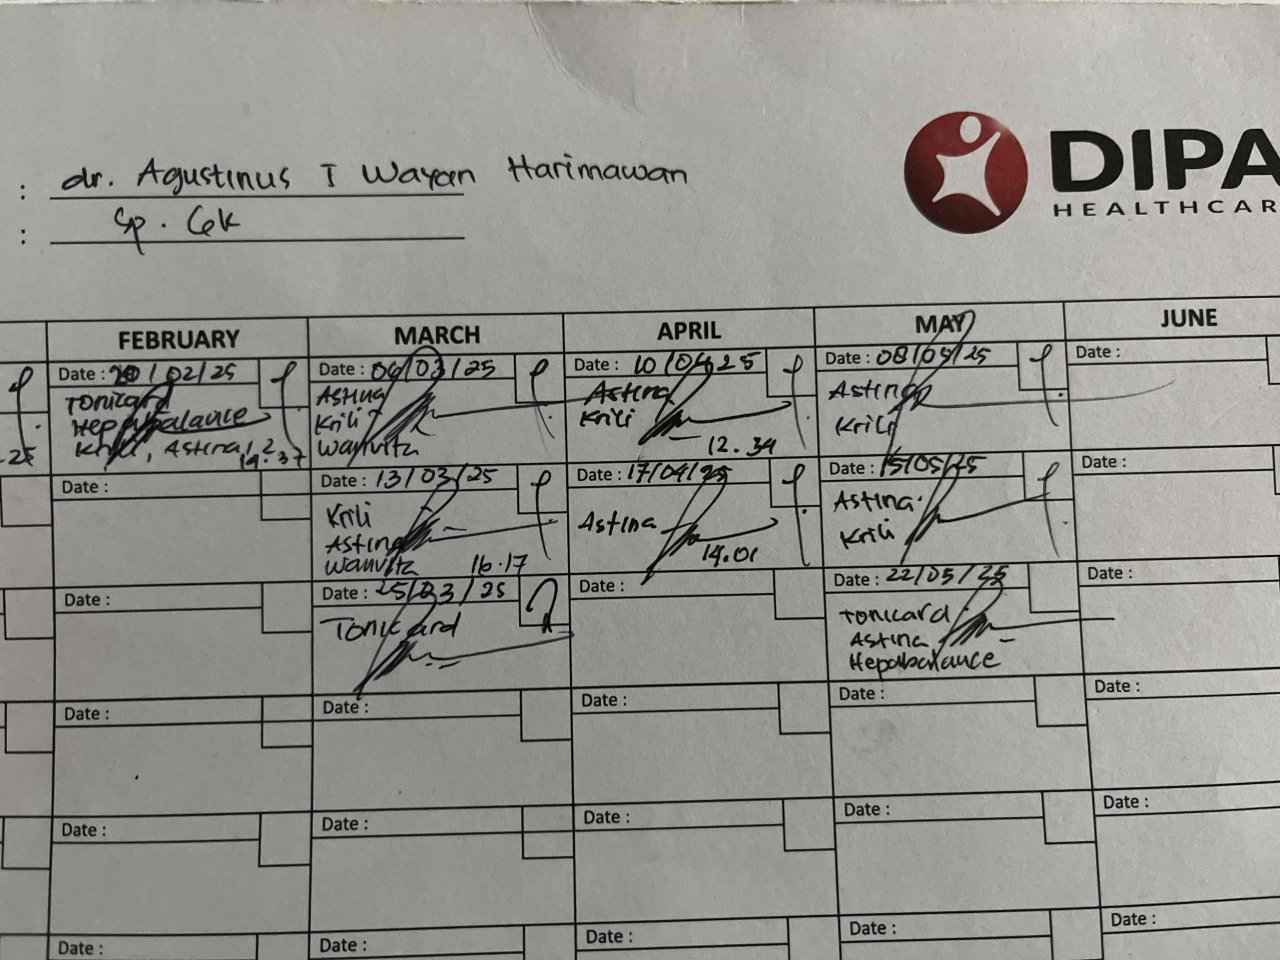 : dr. Agustinus I Wayan Harimawan
: Sp. GK
DIPA
HEALTHCAR
FEBRUARY
MARCH
APRIL
MAY
JUNE
.25
Date : 20/02/25
Tonicard
Hepabalance
Krili, Astina
14.37
Date :
Date :
Date :
Date :
Date :
Date : 06/03/25
Astina
Krili
Wanvita
Date : 13/03/25
Krili
Astina
Wanvita 16.17
Date : 25/03/25
Tonicard
Date :
Date :
Date :
Date : 10/04/25
Astina
Krili
12.34
Date : 17/04/25
Astina
14.01
Date :
Date :
Date :
Date :
Date : 08/05/25
Astina
Krili
Date : 15/05/25
Astina
Krili
Date : 22/05/25
Tonicard
Astina
Hepabalance
Date :
Date :
Date :
Date :
Date :
Date :
Date :
Date :
Date :